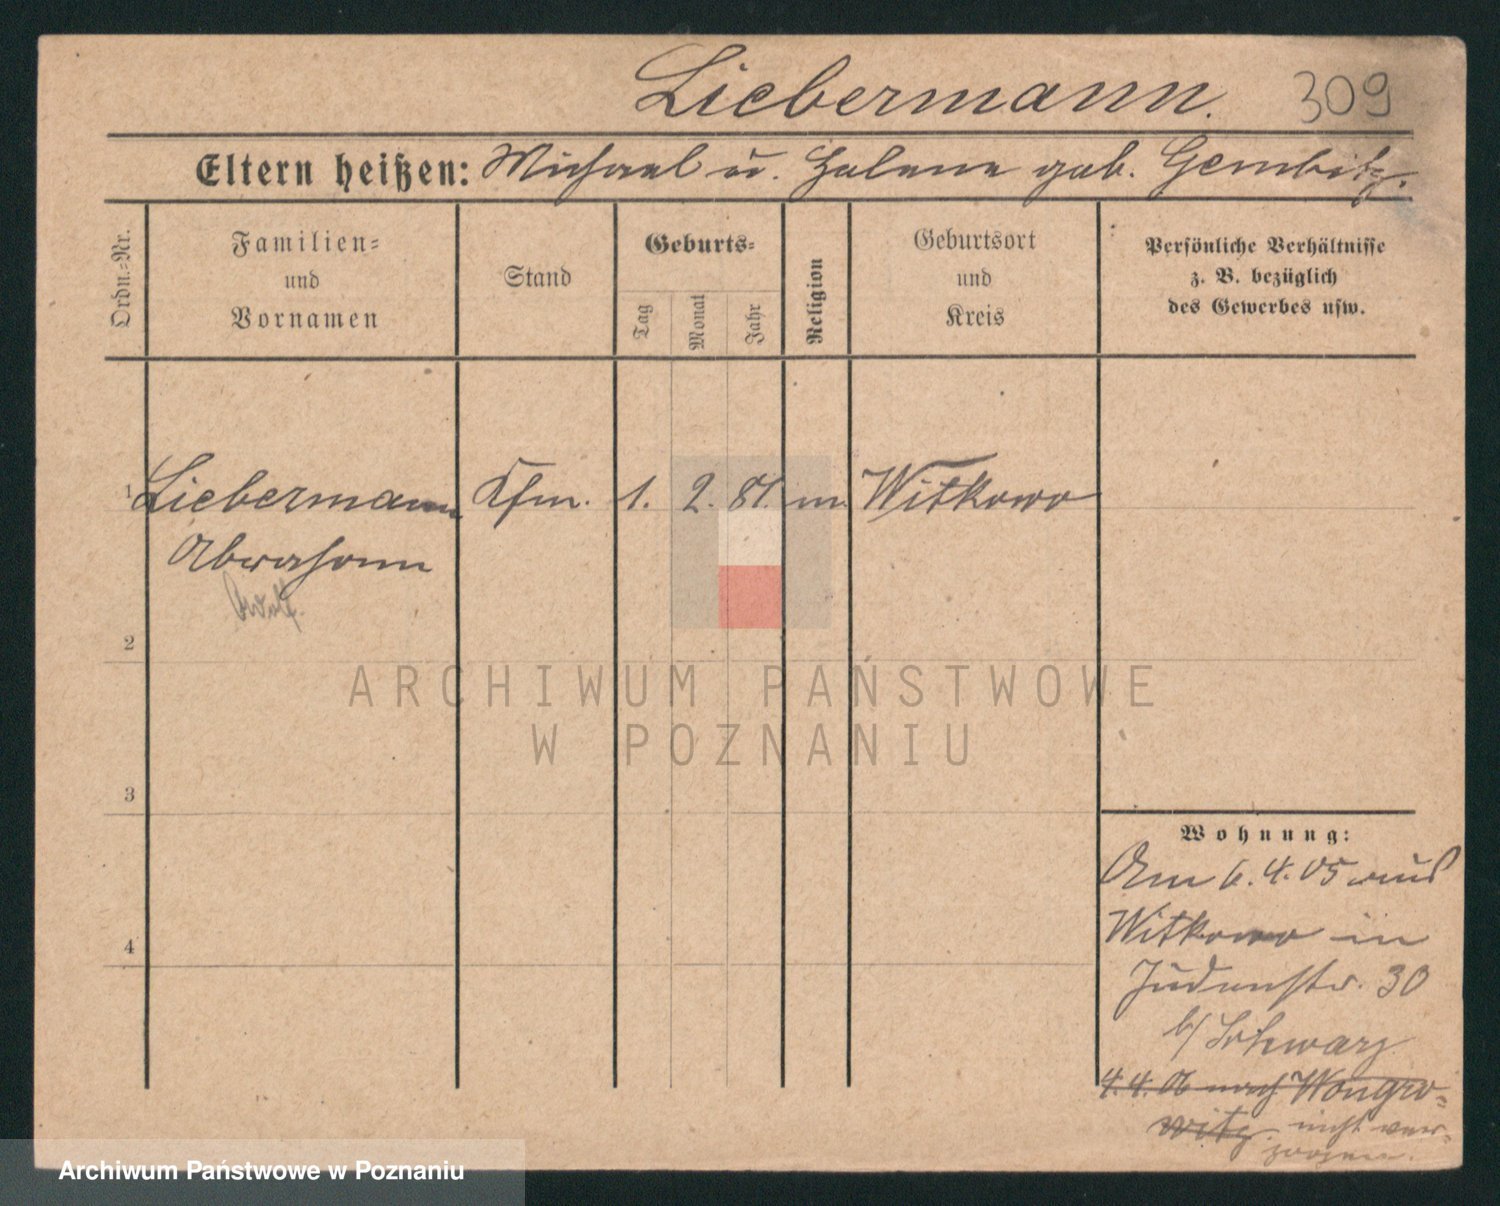 Liebermann. 309
Eltern heißen: Michael u. Helene geb. Gembitz.
Ordn.-Nr.
Familien- und Vornamen
Stand
Geburts-
Tag
Monat
Jahr
Religion
Geburtsort und Kreis
Persönliche Verhältnisse
z. B. bezüglich
des Gewerbes usw.
1 Liebermann Kfm. 1. 2. 81. m. Witkowo
Abraham
Adolf.
2
ARCHIWUM PAŃSTWOWE
W POZNANIU
3
4
Wohnung:
Am 6.4.05 aus
Witkowo in
Judenstr. 30
b/ Schwarz
4.4.06 nach Wongro-
witz. nicht ver-
zogen.
Archiwum Państwowe w Poznaniu